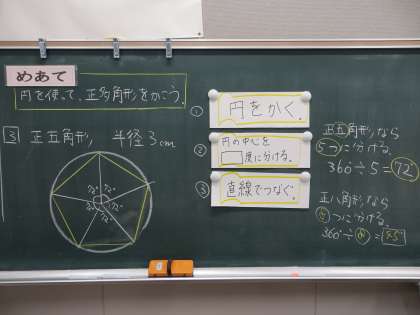 めあて
円を使って、正多角形をかこう。
3 正五角形, 半径3cm
72° 72° 72° 72° 72°
① 円をかく。
② 円の中心を
□度に分ける。
③ 直線でつなぐ。
正五角形なら
5つに分ける。
360÷5=72
正八角形なら
8つに分ける。
360÷8=45°